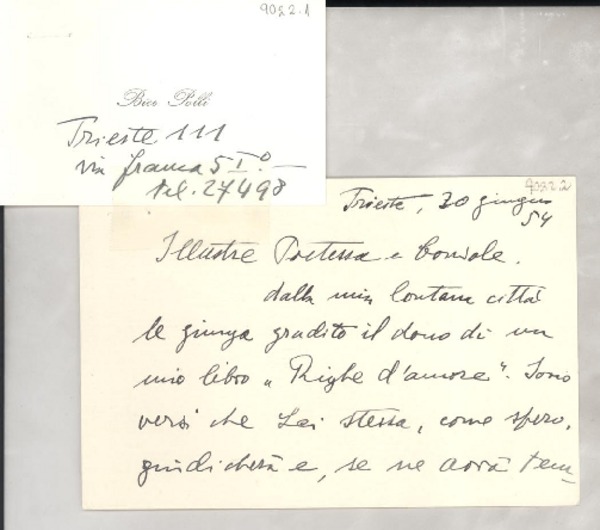 9022.1
Bice Polli
Trieste 111
via franca 5 I.°
tel. 27498
90222
Trieste, 20 giugno
54
Illustre Poetessa e Console.
dalla mia lontana città
le giunga gradito il dono di un
mio libro „Righe d'amore". Sono
versi che Lei stessa, come spero,
giudicherà e, se ne avrà tem-